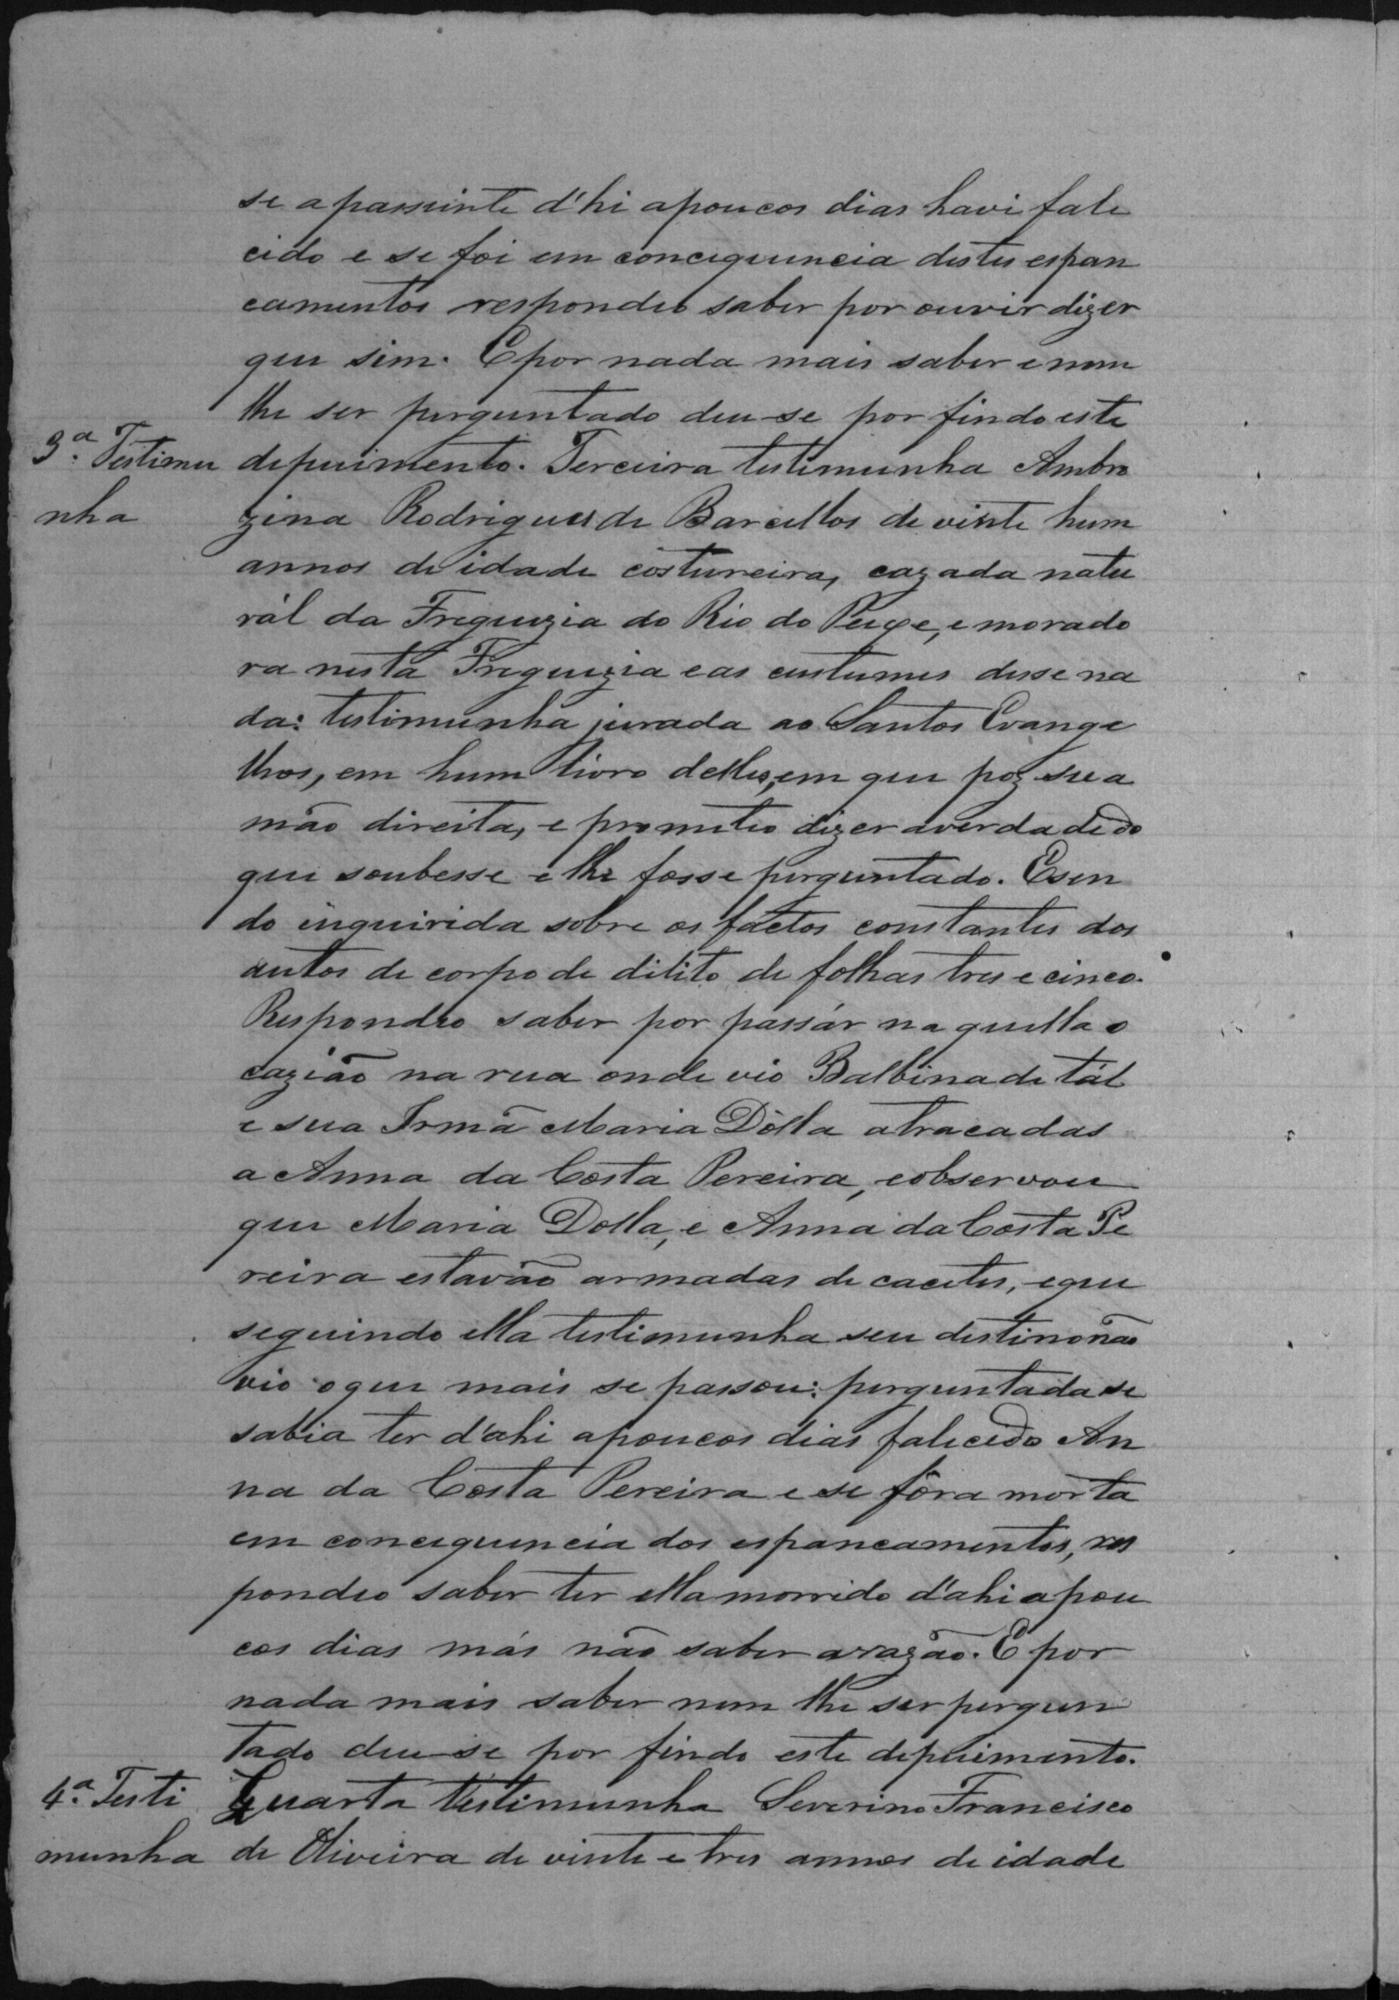 se a passiente d'hi apoucos dias havi fale
cido e se foi em concequencia destes espan
camentos respondeo saber por ouvir dizer
que sim. E por nada mais saber e nem
lhe ser perguntado deu-se por findo este
3.ª Testimu depuimento. Terceira testimunha Ambro
nha zina Rodrigues de Barcellos de vinte hum
annos de idade costureira, cazada natu
rál da Freguezia do Rio do Peixe, e morado
ra nesta Freguezia e as custumes disse na
da: testimunha jurada ao Santos Evange
lhos, em hum livro delles, em que poz sua
mão direita, e prometeo dizer averdade do
que soubesse e lhe fosse perguntado. Esen
do inquirida sobre os factos constantes dos
autos de corpo de dilito de folhas tres e cinco.
Respondeo saber por passár naquella o
cazião na rua onde vio Balbina de tál
e sua Irmã Maria Dólla atracadas
a Anna da Costa Pereira, eobservou
que Maria Dolla, e Anna da Costa Pe
reira estavão armadas de cacetes, eque
seguindo ella testimunha seu destino não
vio oque mais se passou: perguntada se
sabia ter d'ahi apoucos dias falecido An
na da Costa Pereira e se fôra mórta
em concequencia dos espancamentos, res
pondeo saber ter ella morrido d'ahi apou
cos dias más não saber arazão. E por
nada mais saber nem lhe ser pergun
tado deu-se por findo este depuimento.
4.ª Testi Quarta testimunha Severino Francisco
munha de Oliveira de vinte e tres annos de idade